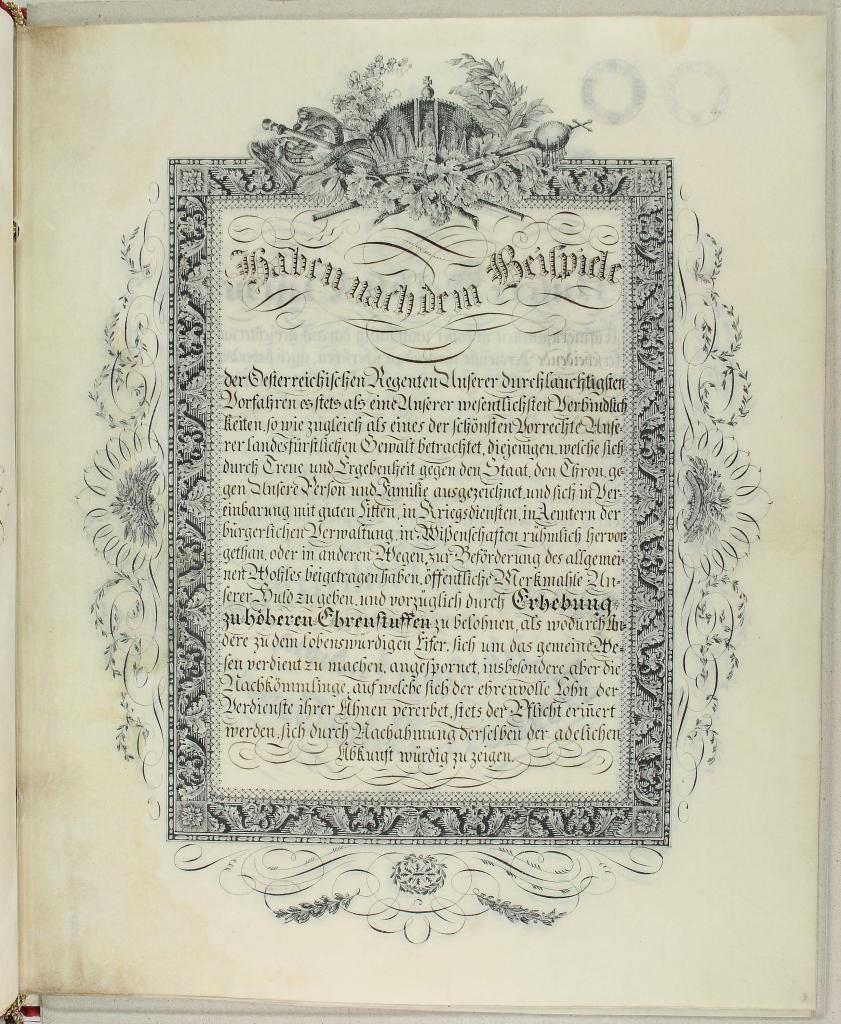 Haben nach dem Beispiele
der Oesterreichischen Regenten Unserer durchlauchtigsten
Vorfahren es stets als eine Unserer wesentlichsten Verbindlich
keiten, so wie zugleich als eines der schönsten Vorrechte Unse-
rer landesfürstlichen Gewalt betrachtet, diejenigen, welche sich
durch Treue und Ergebenheit gegen den Staat, den Thron, ge-
gen Unsere Person und Familie ausgezeichnet, und sich in Ver-
einbarung mit guten Sitten, in Kriegsdiensten, in Aemtern der
bürgerlichen Verwaltung, in Wißenschaften rühmlich hervor
gethan, oder in anderen Wegen, zur Beförderung des allgemei-
nen Wohles beigetragen haben, öffentliche Merkmahle Un-
serer Huld zu geben, und vorzüglich durch Erhebung
zu höheren Ehrenstuffen zu belohnen, als wodurch An-
dere zu dem lobenswürdigen Eifer, sich um das gemeine We-
sen verdient zu machen, angespornet, insbesondere aber die
Nachkömmlinge, auf welche sich der ehrenvolle Lohn der
Verdienste ihrer Ahnen vererbet, stets der Pflicht erinnert
werden, sich durch Nachahmung derselben der adelichen
Abkunft würdig zu zeigen.